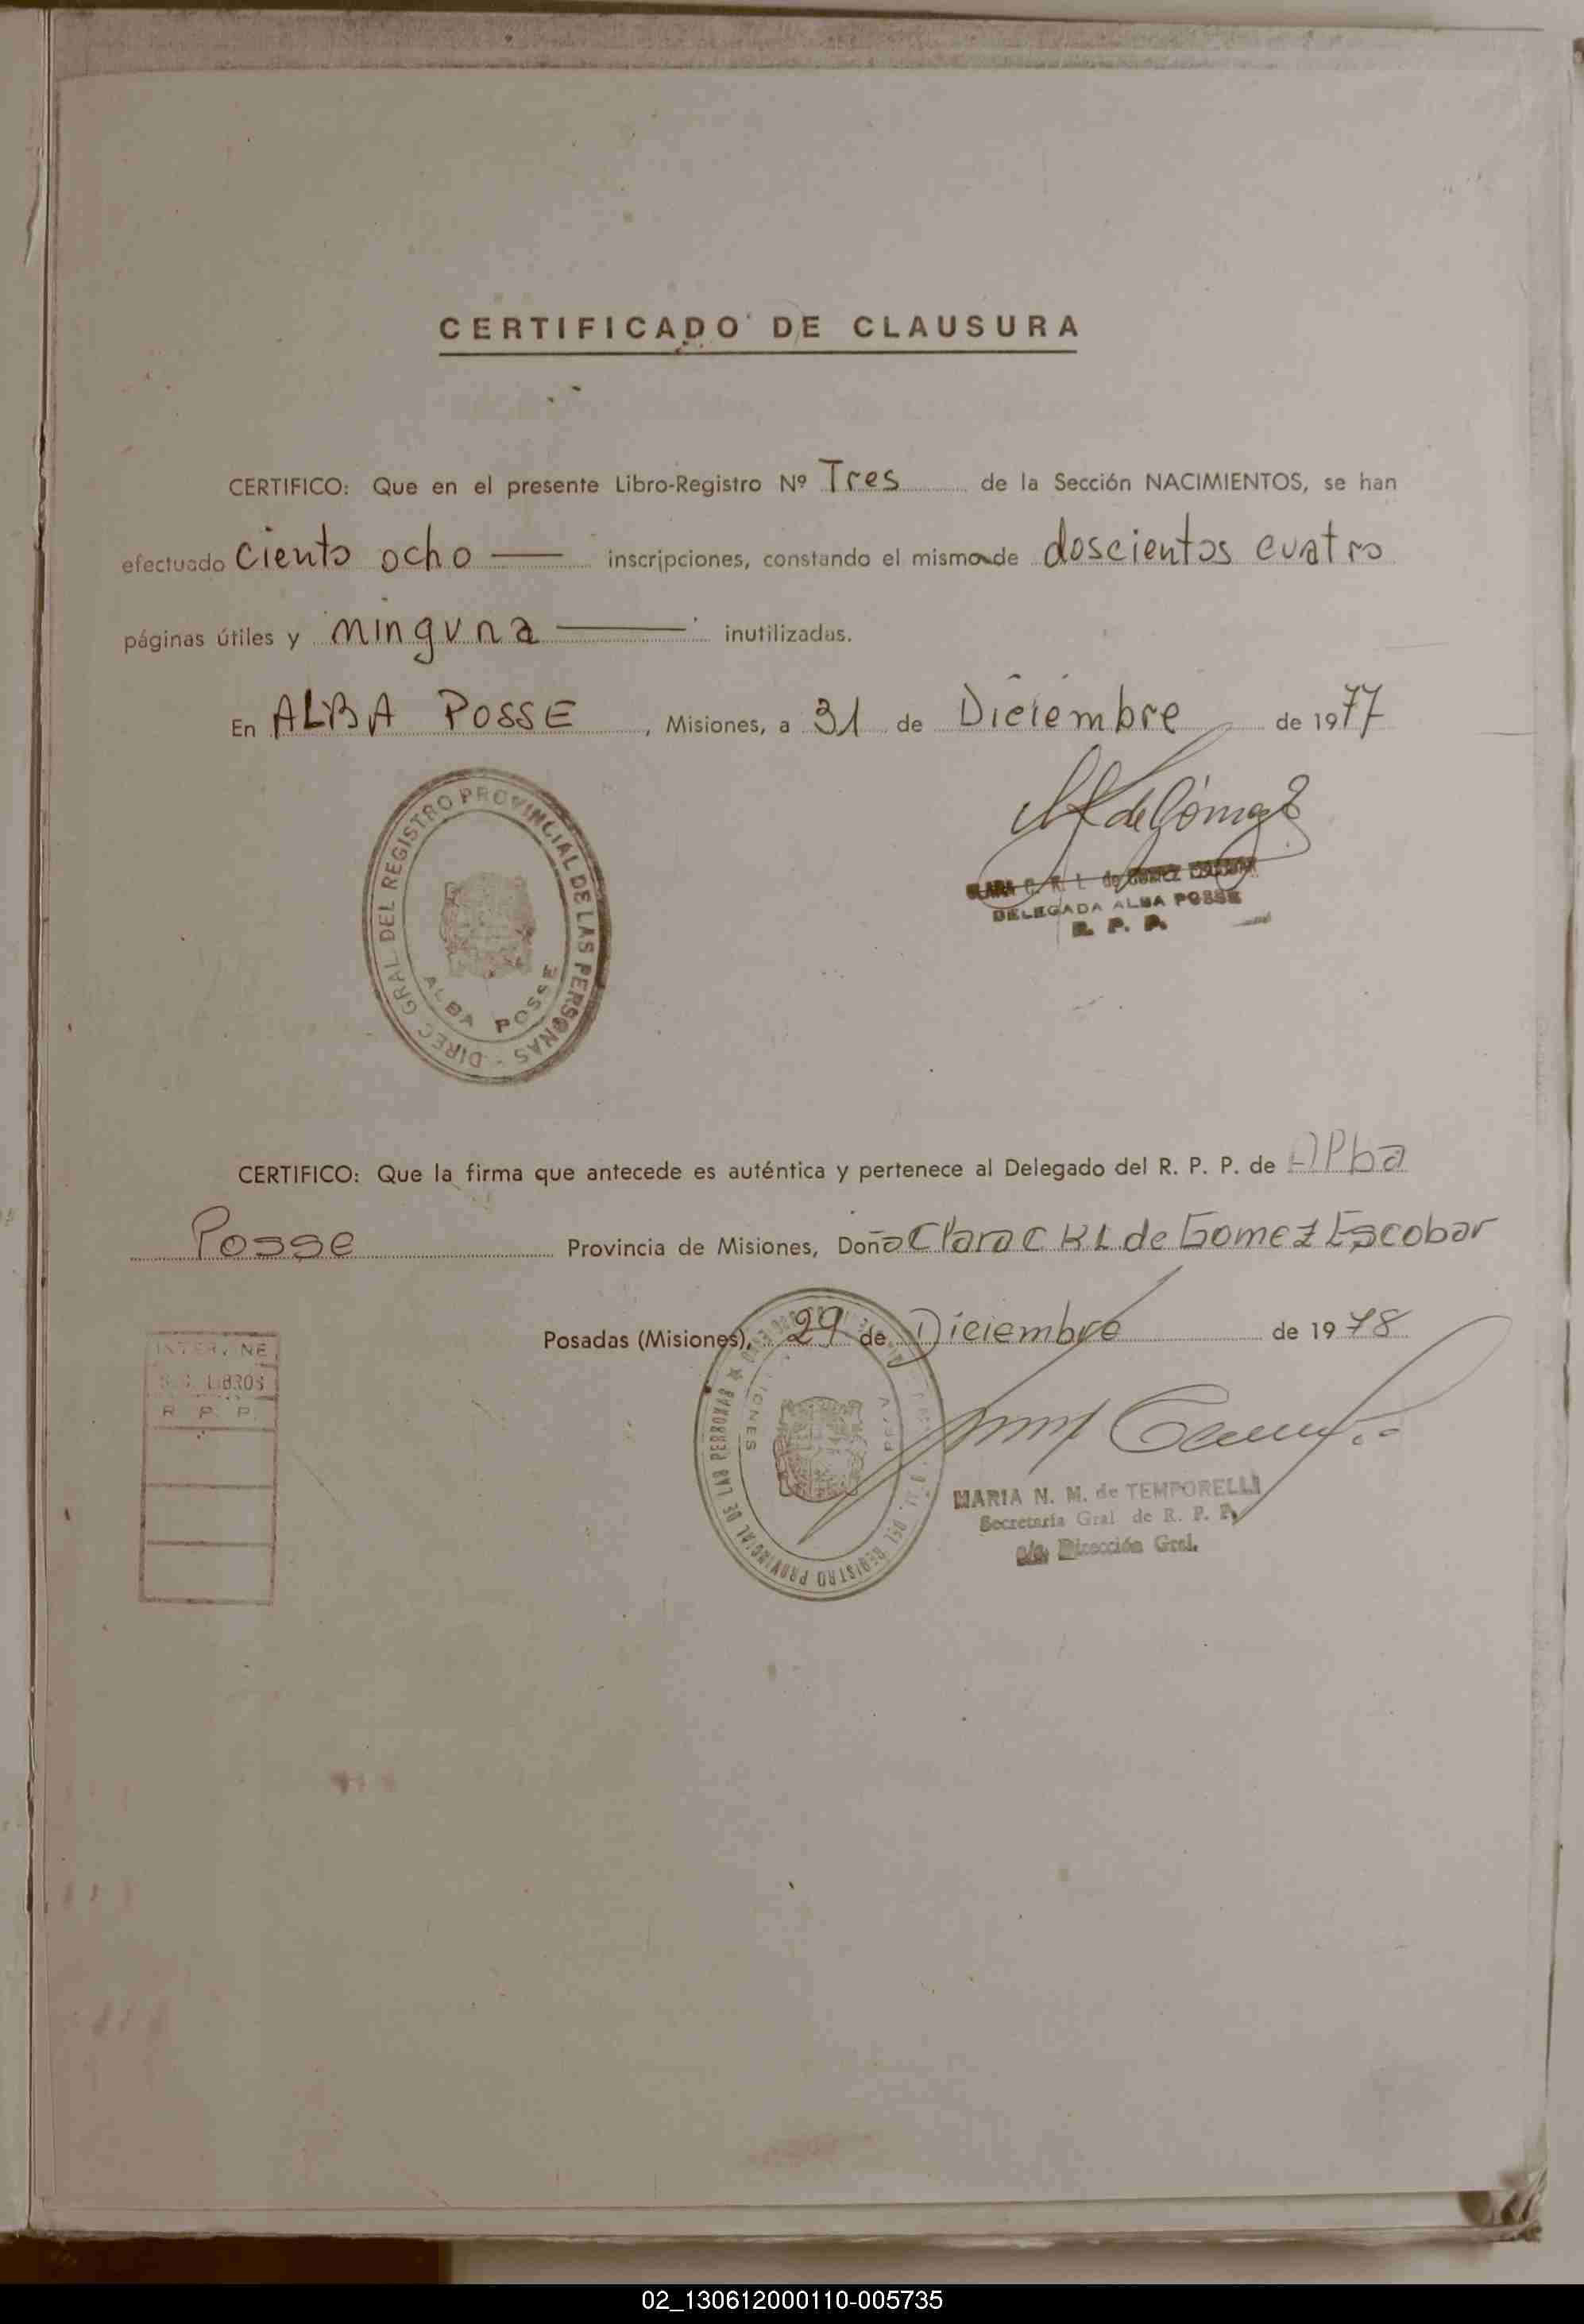 CERTIFICADO DE CLAUSURA
CERTIFICO: Que en el presente Libro-Registro Nº Tres de la Sección NACIMIENTOS, se han
efectuado ciento ocho — inscripciones, constando el mismo de doscientos cuatro
páginas útiles y ninguna — inutilizadas.
En ALBA POSSE, Misiones, a 31 de Diciembre de 1977
DIREC GRAL DEL REGISTRO PROVINCIAL DE LAS PERSONAS -
ALBA POSSE
de Gómez
CLARA C. K. L. de GOMEZ ESCOBAR
DELEGADA ALBA POSSE
R. P. P.
CERTIFICO: Que la firma que antecede es auténtica y pertenece al Delegado del R. P. P. de Alba
Posse Provincia de Misiones, Doña Clara C K L de Gomez Escobar
Posadas (Misiones), 29 de Diciembre de 1978
INTERVINE
LIBROS
R. P. P.
DEL REGISTRO PROVINCIAL DE LAS PERSONAS
MARIA N. M. de TEMPORELLI
Secretaria Gral de R. P. P.
a/c. Dirección Gral.
02_130612000110-005735